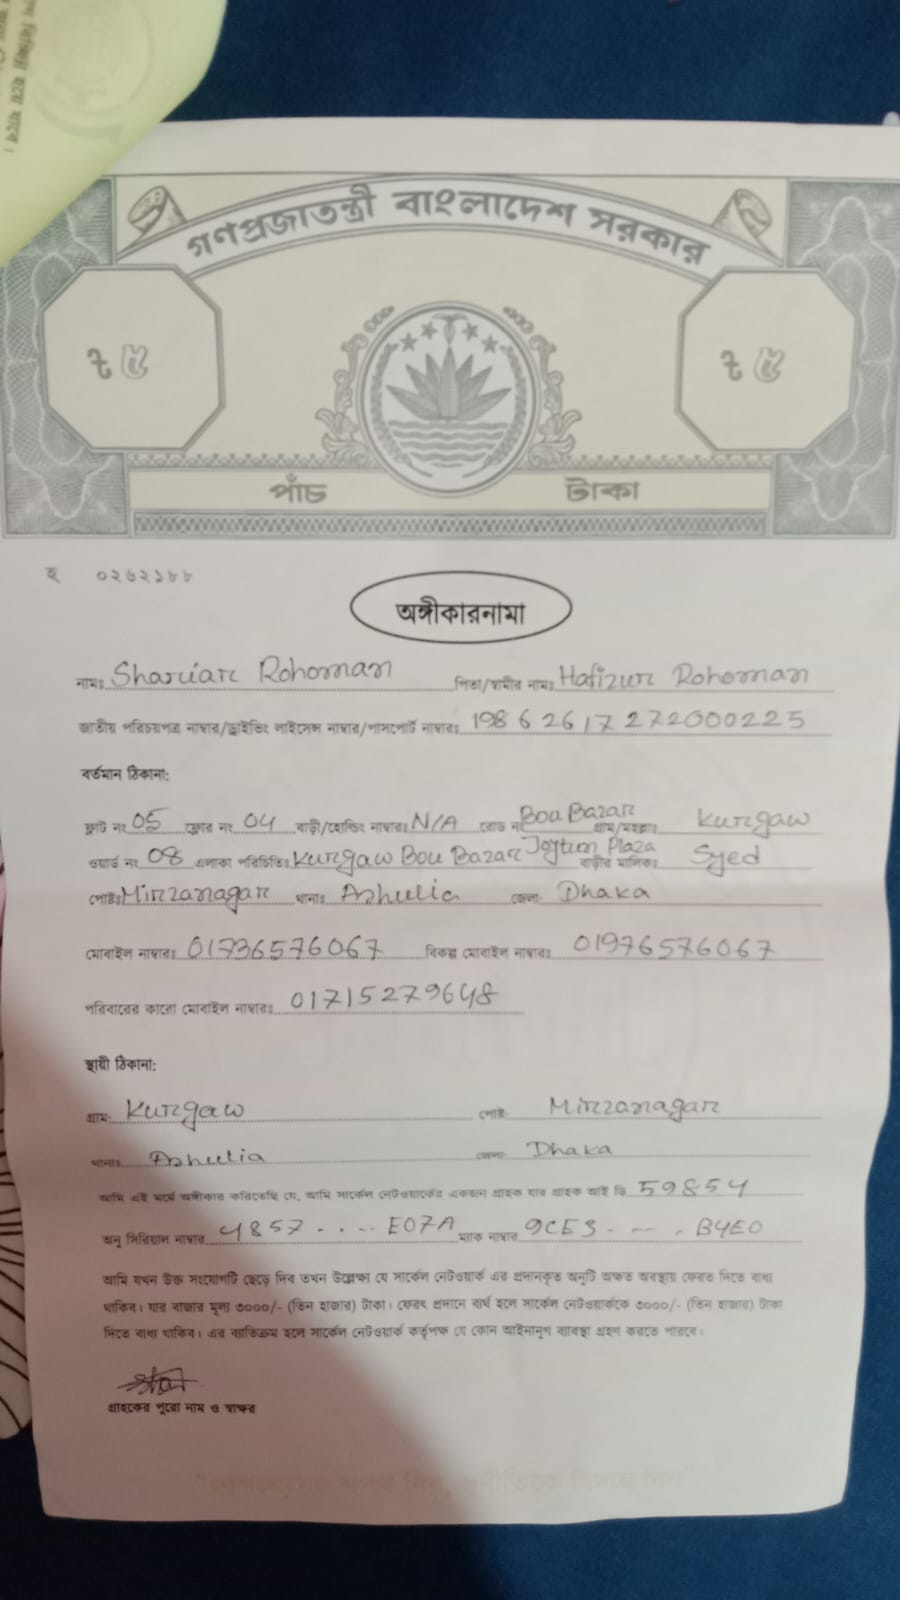 গণপ্রজাতন্ত্রী বাংলাদেশ সরকার
৳ ৫ ৳ ৫
পাঁচ টাকা
হ ০২৬২১৮৮
অঙ্গীকারনামা
নামঃ Shariar Rohoman পিতা/স্বামীর নামঃ Hafizur Rohoman
জাতীয় পরিচয়পত্র নাম্বার/ড্রাইভিং লাইসেন্স নাম্বার/পাসপোর্ট নাম্বারঃ 19862617272000225
বর্তমান ঠিকানা:
ফ্লাট নং 05 ফ্লোর নং 04 বাড়ী/হোল্ডিং নাম্বারঃ N/A রোড নং Bou Bazar গ্রাম/মহল্লাঃ Kurgaw
ওয়ার্ড নং 08 এলাকা পরিচিতিঃ Kurgaw Bou Bazar Joytun Plaza বাড়ীর মালিকঃ Syed
পোষ্টঃ Mirzanagar থানাঃ Ashulia জেলা: Dhaka
মোবাইল নাম্বারঃ 01736576067 বিকল্প মোবাইল নাম্বারঃ 01976576067
পরিবারের কারো মোবাইল নাম্বারঃ 01715279648
স্থায়ী ঠিকানা:
গ্রাম: Kurgaw পোষ্ট: Mirzanagar
থানাঃ Ashulia জেলা: Dhaka
আমি এই মর্মে অঙ্গীকার করিতেছি যে, আমি সার্কেল নেটওয়ার্কের একজন গ্রাহক যার গ্রাহক আই ডি 59854
অনু সিরিয়াল নাম্বার 4857 .... E07A ম্যাক নাম্বার 9CE3 - - . B4E0
আমি যখন উক্ত সংযোগটি ছেড়ে দিব তখন উল্লেক্ষ্য যে সার্কেল নেটওয়ার্ক এর প্রদানকৃত অনুটি অক্ষত অবস্থায় ফেরত দিতে বাধ্য
থাকিব। যার বাজার মূল্য ৩০০০/- (তিন হাজার) টাকা। ফেরৎ প্রদানে ব্যর্থ হলে সার্কেল নেটওয়ার্ককে ৩০০০/- (তিন হাজার) টাকা
দিতে বাধ্য থাকিব। এর ব্যতিক্রম হলে সার্কেল নেটওয়ার্ক কর্তৃপক্ষ যে কোন আইনানুগ ব্যাবস্থা গ্রহণ করতে পারবে।
গ্রাহকের পুরো নাম ও স্বাক্ষর